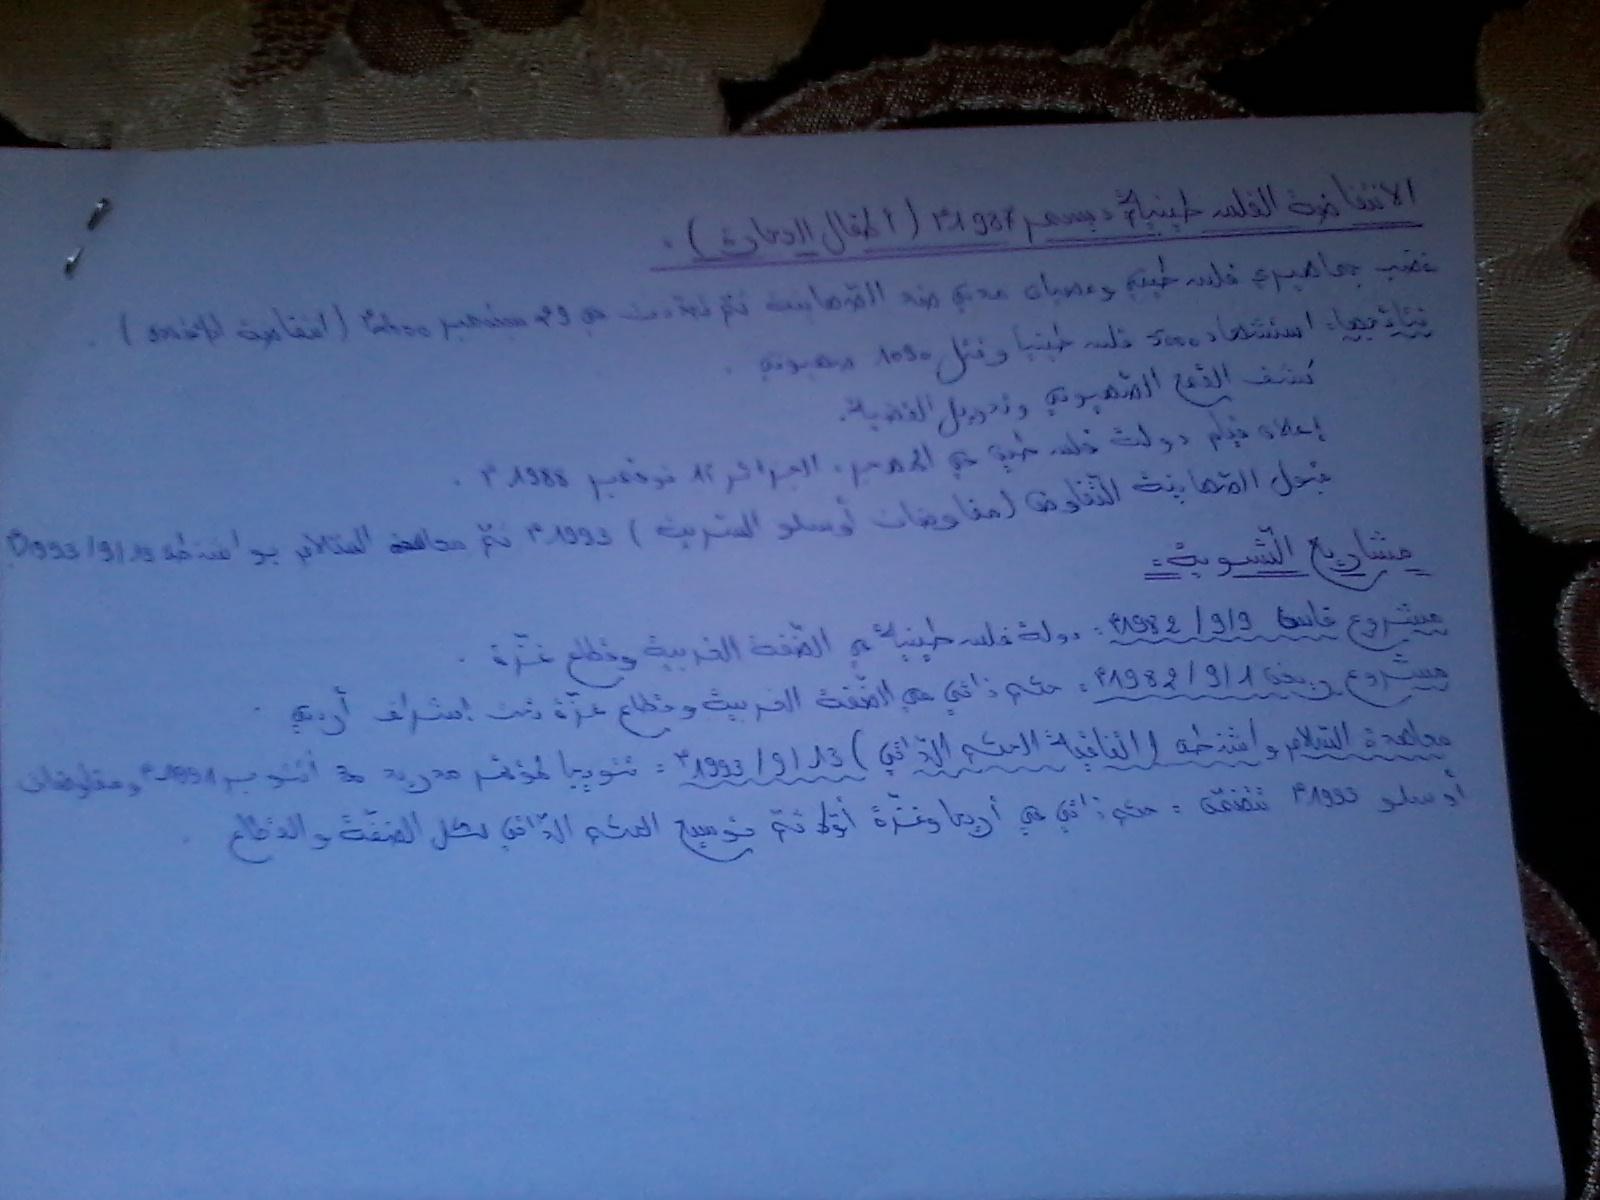 الانتفاضة الفلسطينية ديسمبر 1987م (أطفال الحجارة).
غضب جماهيري فلسطيني وعصيان مدني ضد الصهاينة ثم تجددت في 29 سبتمبر 2000م (انتفاضة الأقصى).
نتائجها: استشهاد 2000 فلسطينيا وقتل 1090 صهيوني.
كشف القمع الصهيوني وتدويل القضية.
إعلان قيام دولة فلسطين في الجزائر 15 نوفمبر 1988م.
قبول الصهاينة التفاوض (مفاوضات أوسلو السرية) 1993م ثم معاهدة السلام بواشنطن 13/9/1993م
مشاريع التسوية:
مشروع فاس 9/9/1982م: دولة فلسطينية في الضفة الغربية وقطاع غزة.
مشروع ريغن 1/9/1982م: حكم ذاتي في الضفة الغربية وقطاع غزة تحت إشراف أردني.
معاهدة السلام واشنطن (اتفاقية الحكم الذاتي) 13/9/1993م: تتويجا لمؤتمر مدريد أكتوبر 1991م ومفاوضات
أوسلو 1993م تتضمن: حكم ذاتي في أريحا وغزة أولا ثم توسيع الحكم الذاتي لكل الضفة والقطاع.